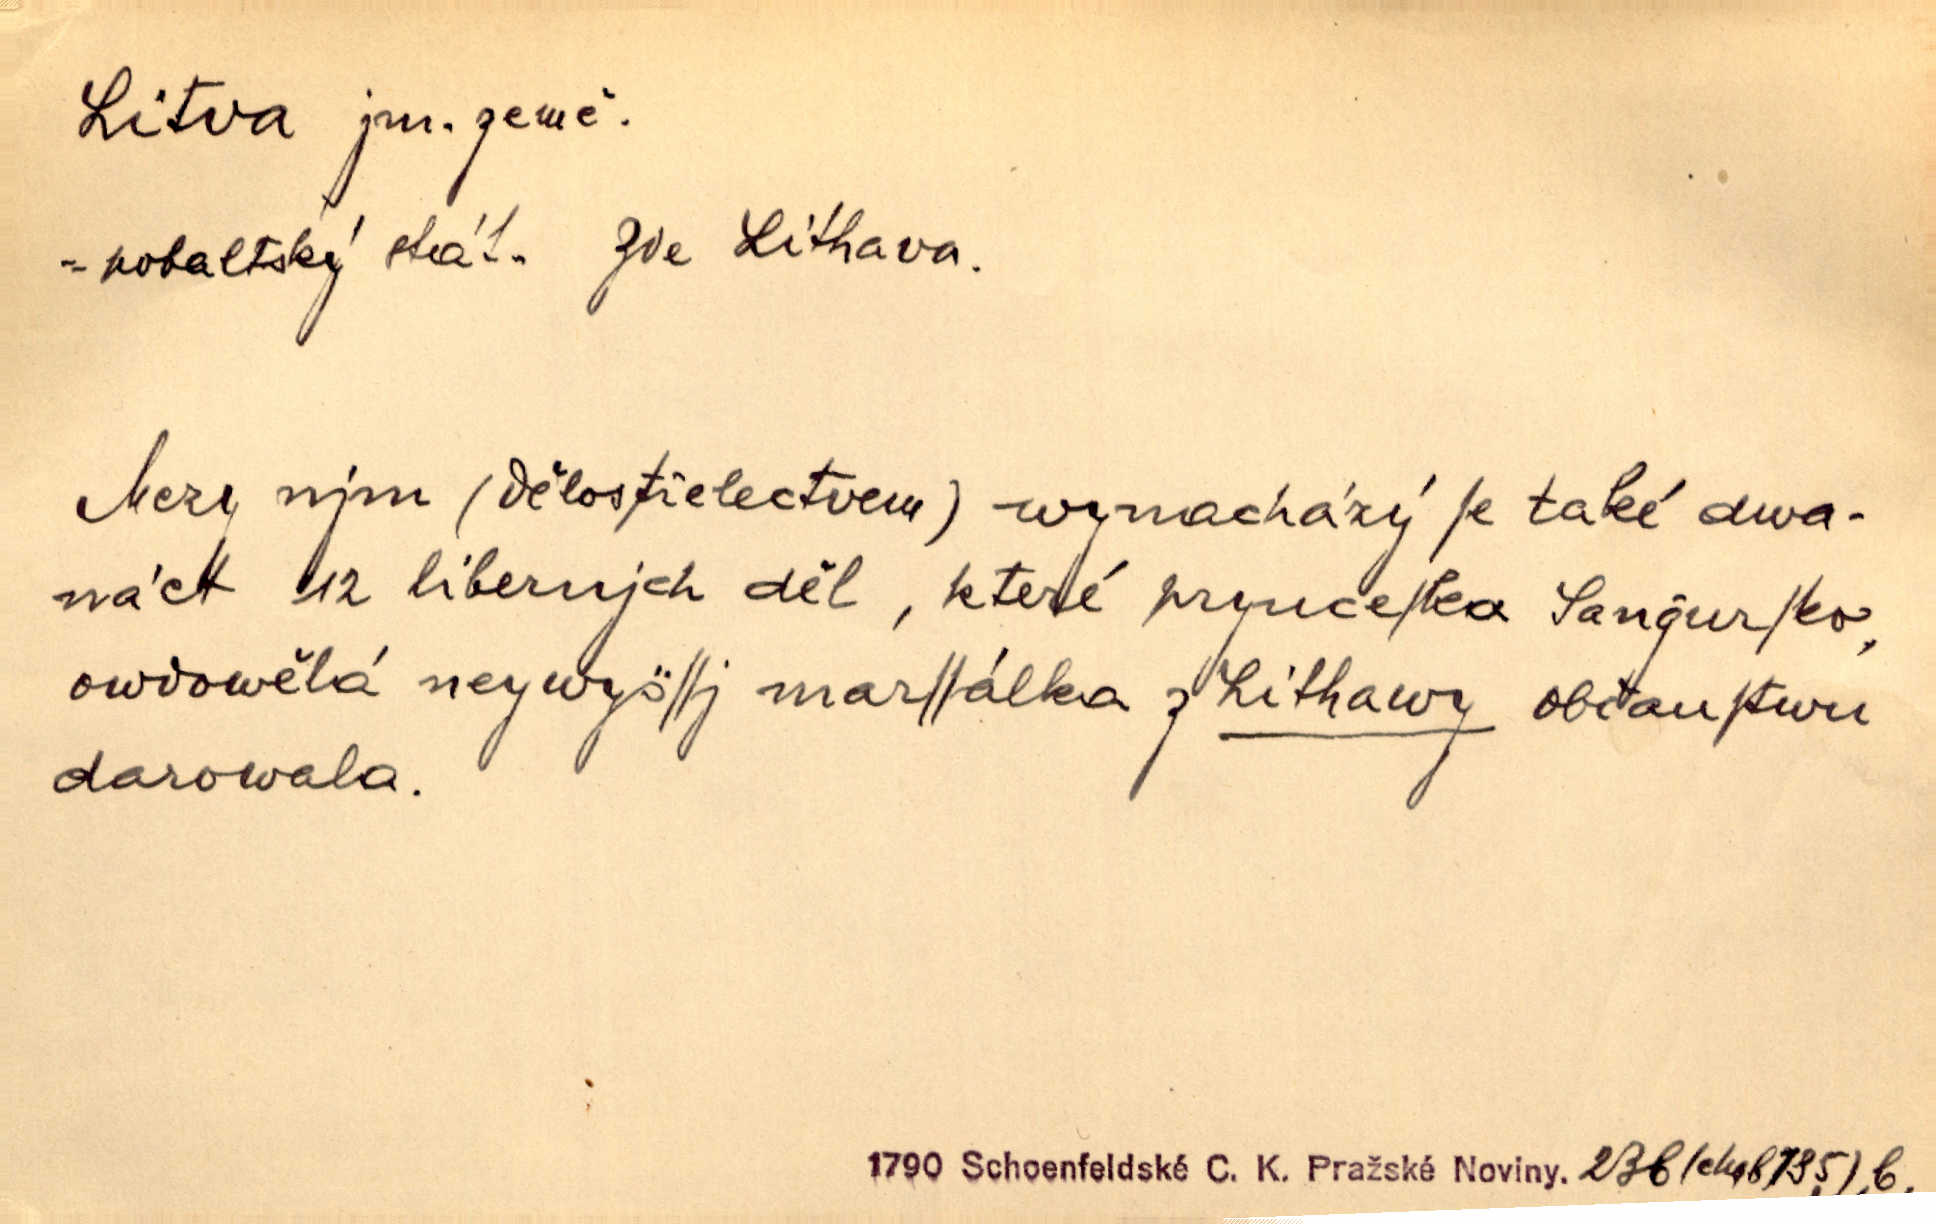 Litva jm. země.
= pobaltský stát. Zde Lithava.
Mezy njm (dělostřelectvem) wynacházý se také dwa-
náct 12 liberných děl, které prynceska Sangursko,
owdowělá neywyšssj marssálka z Lithawy občanstwu
darowala.
1790 Schoenfeldské C. K. Pražské Noviny. 236